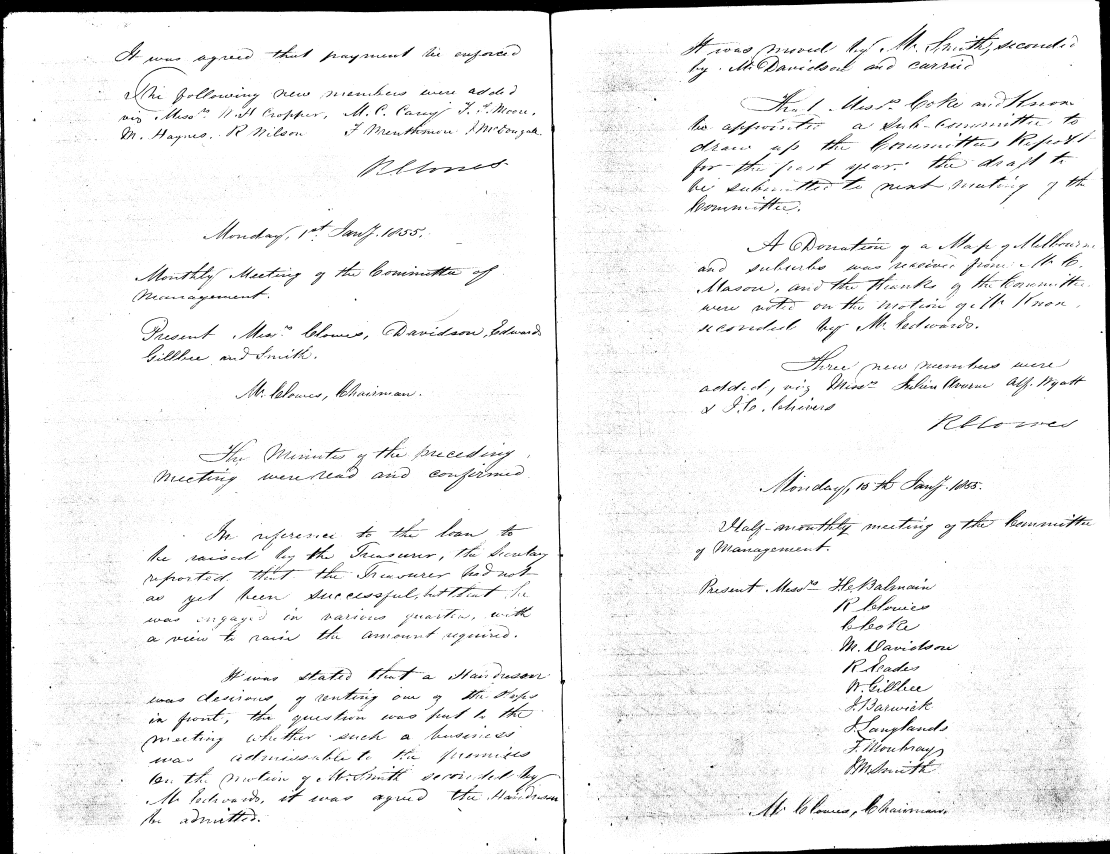 It was agreed that payment be enforced
The following new members were added
viz Messrs H. H Cropper, M. C. Carey T. T. Moore,
M. Haynes, R Wilson F Menthmore & McDougal
R Clowes
Monday, 1st Jany. 1855.
Monthly Meeting of the Committee of
Management.
Present Messrs Clowes, Davidson, Edwards
Gillbee and Smith.
Mr. Clowes, Chairman.
The Minutes of the preceding
meeting were read and confirmed
In reference to the loan to
be raised by the Treasurer, the Secretary
reported that the Treasurer had not
as yet been successful, but that he
was engaged in various quarters, with
a view to raise the amount required.
It was stated that a Hairdresser
was desirous of renting one of the shops
in front, the question was put to the
meeting whether such a business
was admissable to the premises
On the motion of Mr. Smith seconded by
Mr Edwards, it was agreed the Hairdresser
be admitted.
It was moved by Mr. Smith, seconded
by Mr Davidson and carried
That Messrs Coke and Knox
be appointed a sub-committee to
draw up the Committees Report
for the past year. the draft to
be submitted to next meeting of the
Committee.
A Donation of a Map of Melbourne
and suburbs was received from Mr C.
Mason, and the thanks of the Committee
were voted on the motion of Mr Knox,
seconded by Mr Edwards.
Three new members were
added, viz Messrs Julien Alf. Wyatt
& J. C. Chivers
R Clowes
Monday, 15th Jany. 1855.
Half-monthly meeting of the Committee
of Management.
Present Messrs H. Balmain
R Clowes
C Coke
M. Davidson
R Eades
W. Gillbee
J. Barwick
J. Langlands
F. Moubray
R M Smith
Mr Clowes, Chairman.